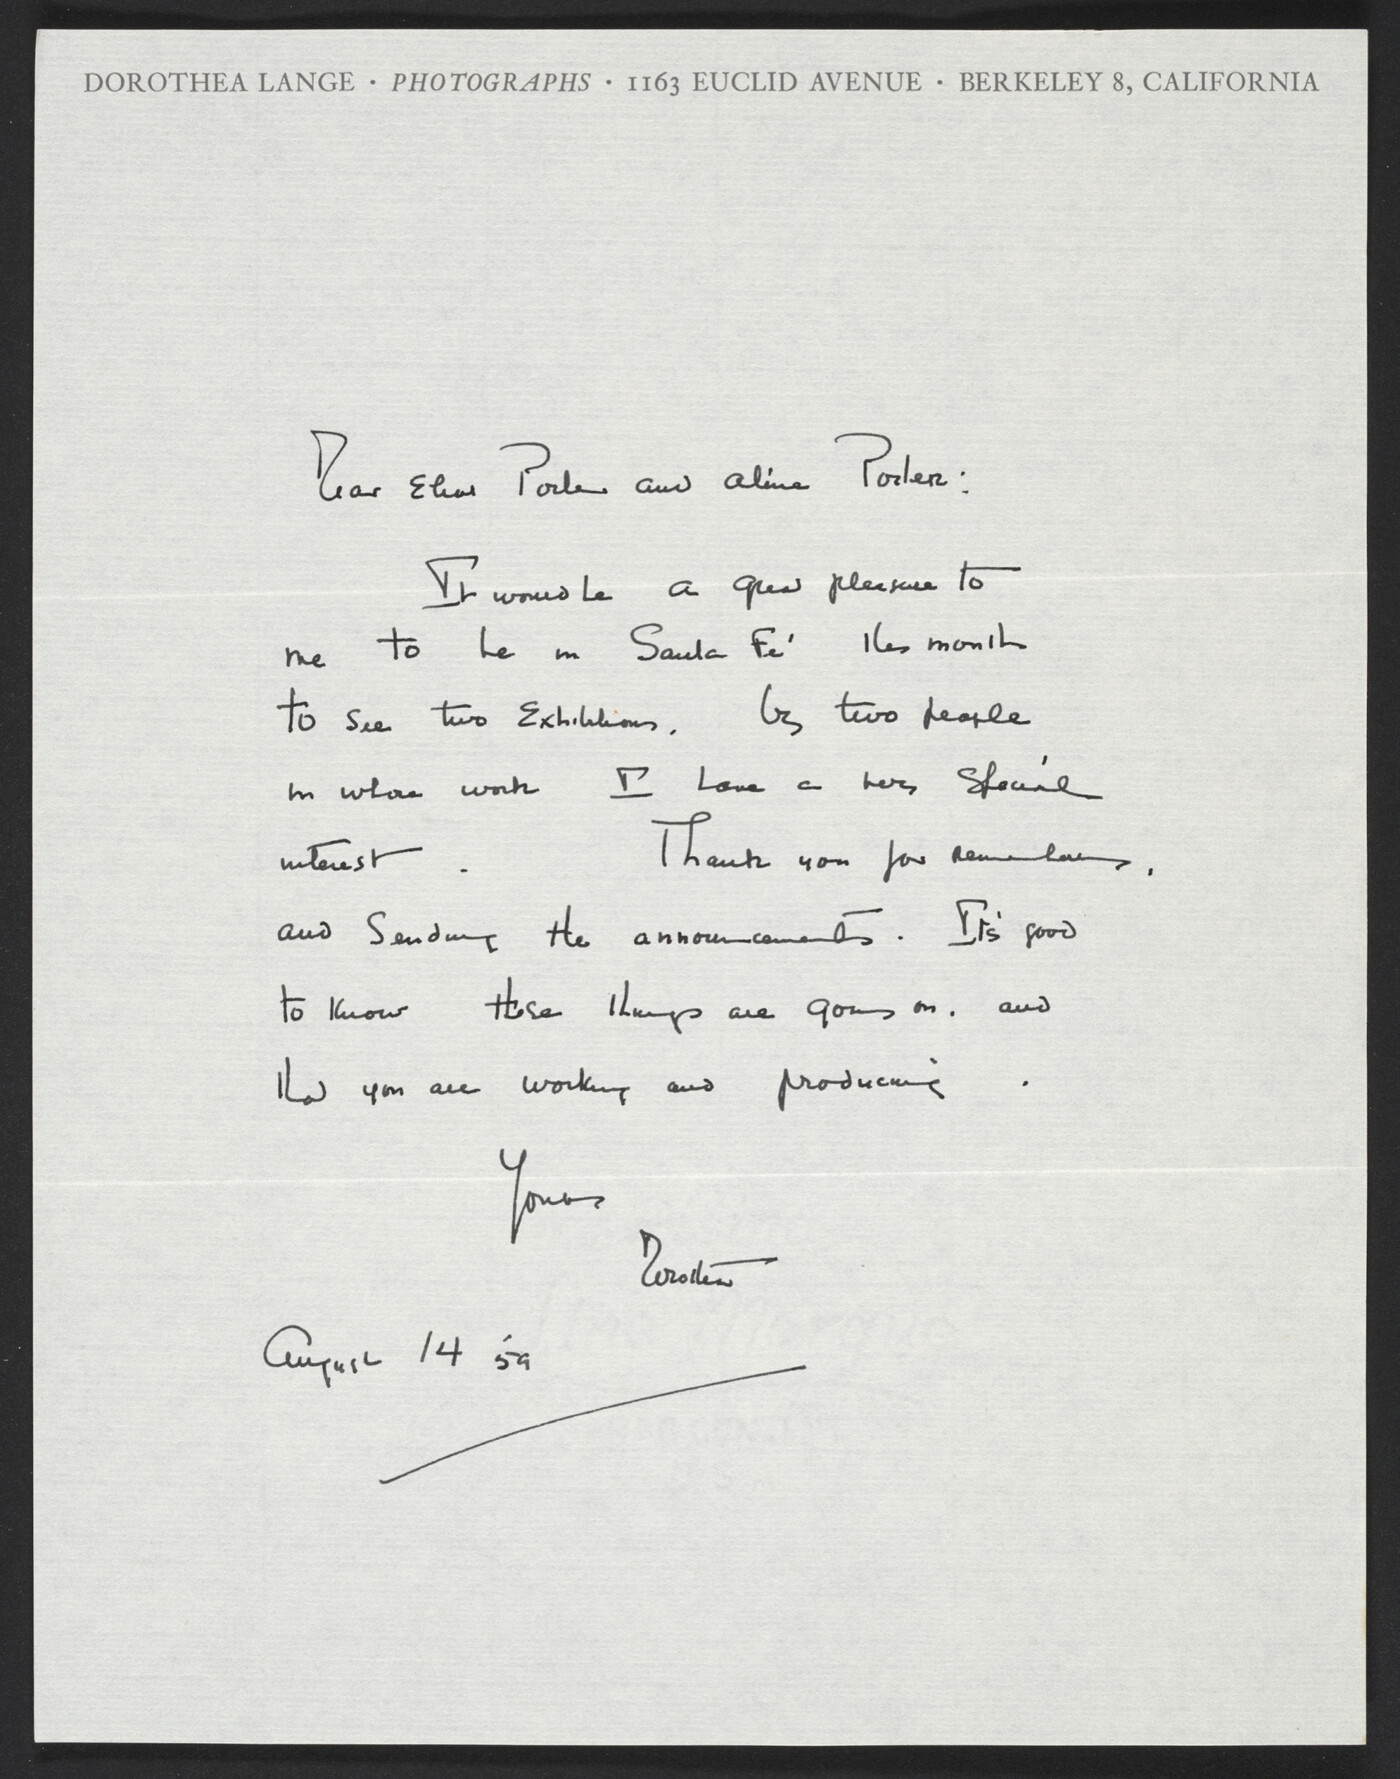 DOROTHEA LANGE · PHOTOGRAPHS · 1163 EUCLID AVENUE · BERKELEY 8, CALIFORNIA
Dear Eliot Porter and Aline Porter:
It would be a great pleasure to
me to be in Santa Fé this month
to see two Exhibitions, by two people
in whose work I have a very special
interest. Thank you for remembering,
and Sending the announcements. It's good
to know these things are going on. and
that you are working and producing.
Yours
Dorothea
August 14 '59